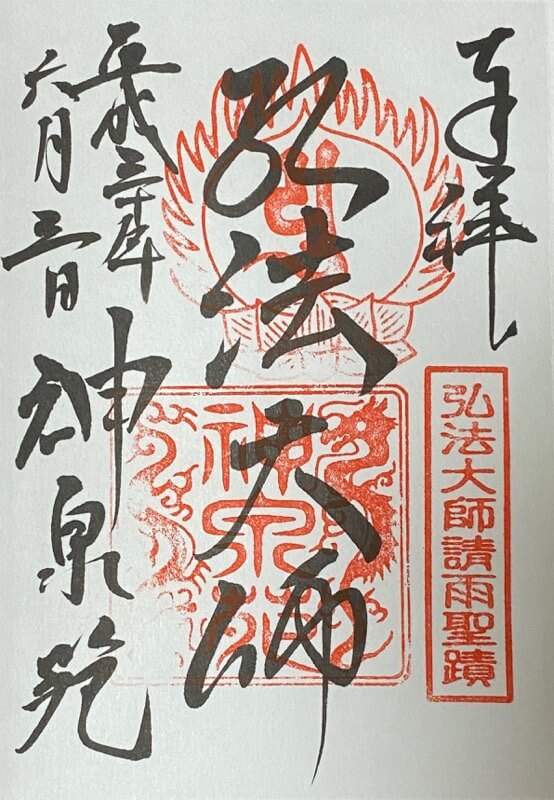 奉拝
弘法大師請雨聖蹟
弘法大師
神泉苑
平成三十年
六月三日
神泉苑